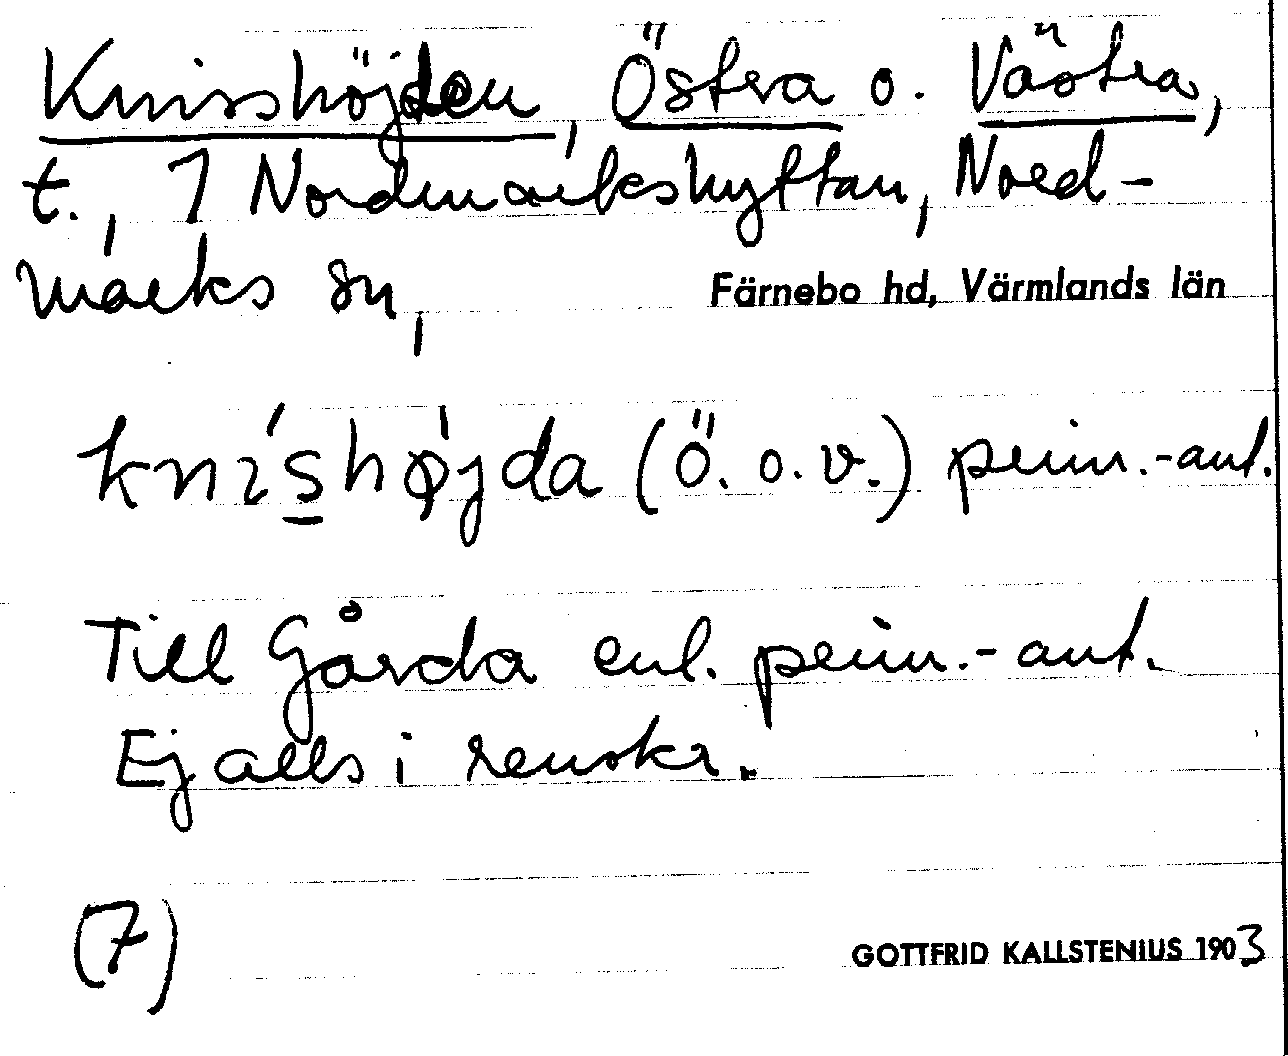 Knisshöjden, Östra o. Västra,
t., 1 Nordmarkshyttan, Nord-
marks sn,
Färnebo hd, Värmlands län
kníshø̀jda (Ö. o. V.) prim.-ant.
Till Gårda enl. prim.-ant.
Ej alls i renskr.
(7)
GOTTFRID KALLSTENIUS 1903